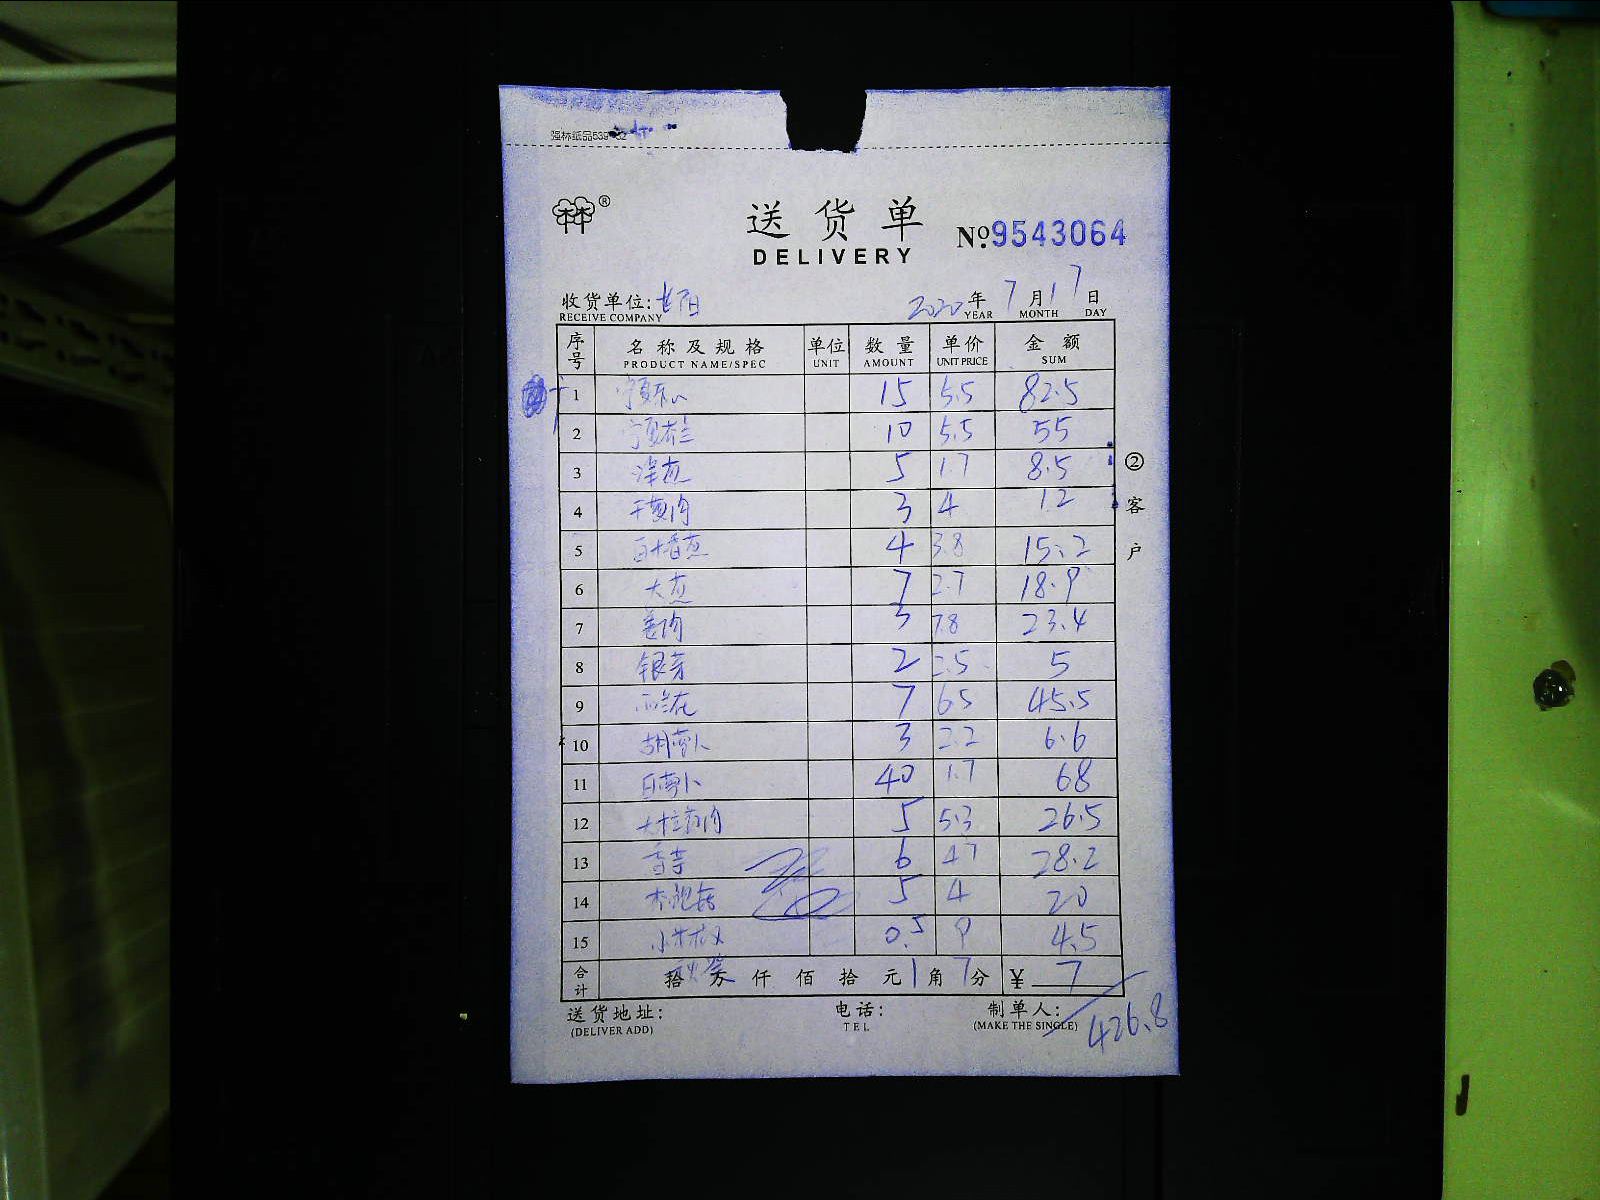 强林纸品539-32
林 ®
送 货 单
DELIVERY
№ 9543064
收货单位: 长阳 2020 年 7 月 17 日
RECEIVE COMPANY YEAR MONTH DAY
序号 名 称 及 规 格 单位 数 量 单价 金 额
PRODUCT NAME/SPEC UNIT AMOUNT UNIT PRICE SUM
1 宁夏菜心 15 5.5 82.5
2 宁夏芥兰 10 5.5 55
3 洋葱 5 1.7 8.5
4 干葱肉 3 4 12
5 4 3.8 15.2
6 大葱 7 2.7 18.9
7 姜肉 3 7.8 23.4
8 银芽 2 2.5 5
9 西兰花 7 6.5 45.5
10 胡萝卜 3 2.2 6.6
11 白萝卜 40 1.7 68
12 5 5.3 26.5
13 香芹 6 4.7 28.2
14 杏鲍菇 5 4 20
15 小米椒 0.5 9 4.5
合计 拾 万 仟 佰 拾 元 1 角 7 分 ¥ 7
② 客 户
送货地址: 电话: 制单人:
(DELIVER ADD) TEL (MAKE THE SINGLE)
426.8